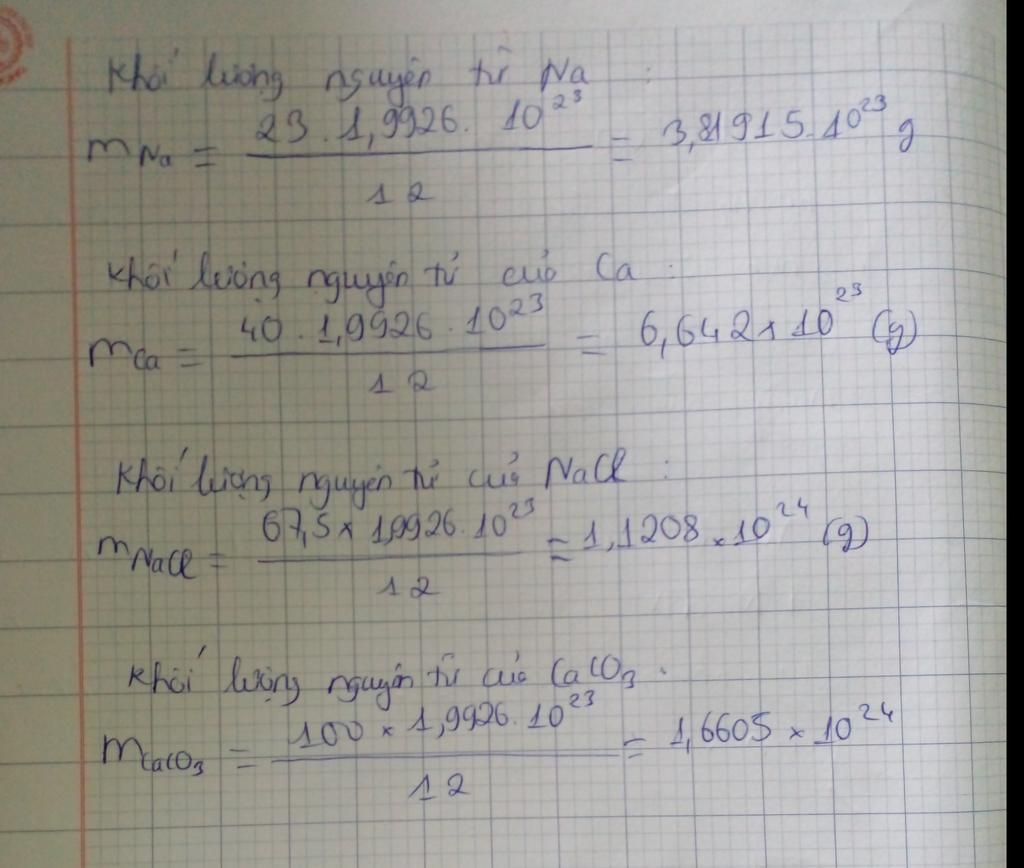 Khối lượng nguyên tử Na :
m Na = 23 . 1,9926 . 10^23 / 12 = 3,81915 . 10^23 g
Khối lượng nguyên tử của Ca :
m Ca = 40 . 1,9926 . 10^23 / 12 = 6,642 x 10^23 (g)
Khối lượng nguyên tử của NaCl :
m NaCl = 67,5 x 1,9926 . 10^23 / 12 = 1,1208 x 10^24 (g)
Khối lượng nguyên tử của CaCO3 .
m CaCO3 = 100 x 1,9926 . 10^23 / 12 = 1,6605 x 10^24